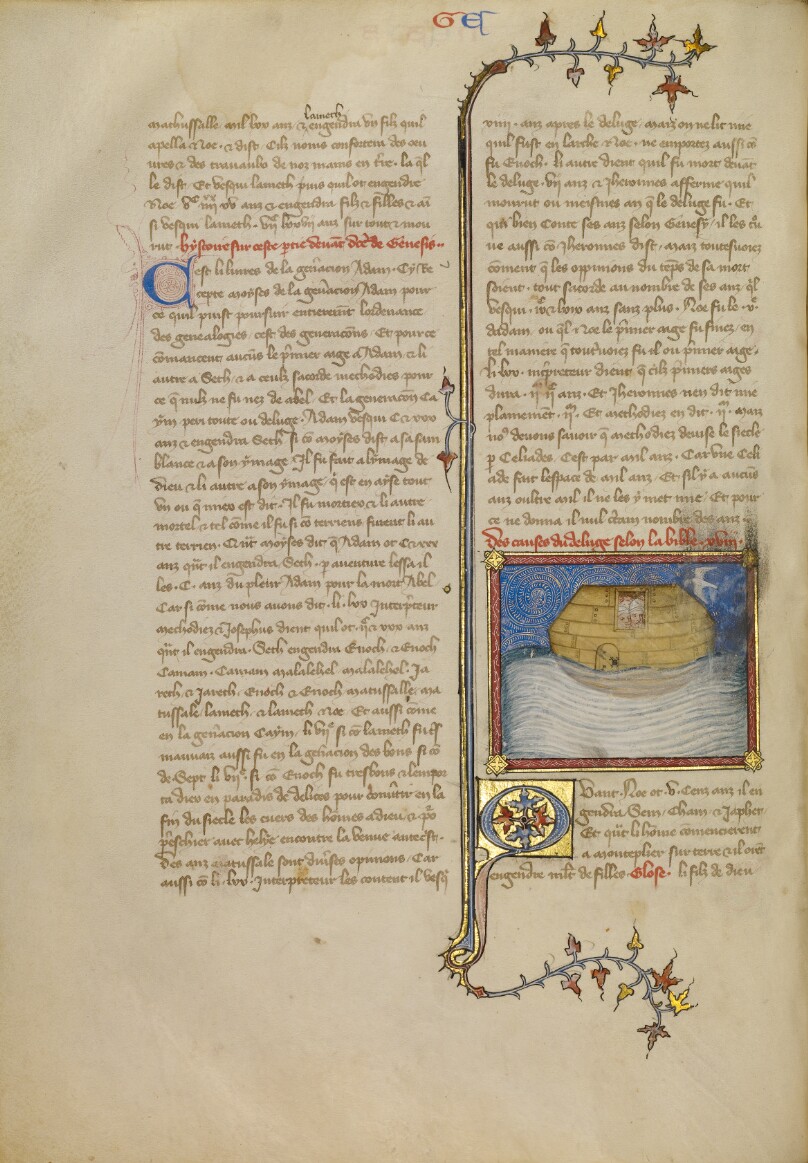 GE
lameth
mathussalle mil lxv anz & engendra vn filz quil
apella Noe · & dist · Cilz nous confortera des oeu
ures & des trauaulx de noz mains en t̄re · la q̄l
le dist · Et vesqui lameth puis quil ot engendre
Noe · anz & engendra filz & filles & āi
si vesqui lameth · anz sur tout & mou
rut · hystoire sur ceste p̄tie deuant d̄cē de Genesis ··
Cest li liures de la gn̄acion Adam · Cy Re
cepte moyses de la gn̄acion Adam pour
ce quil puist poursuir entierem̄t lordenance
des genealogies / cest des generacōns / Et pour ce
cōmancent aucūs le p̄mier aage a Adam & li
autre a Seth / & a ceulz sacorde methodies pour
ce q̄ nulz ne fu nez de abel / Et la generacōn Ca
ym peri toute ou deluge · Adam vesqui C & xxx
anz & engendra Seth si cō moyses dist a sa sem
blance & a son ymage · Il fu fait a lymage de
dieu & li autre a son ymage /
vn ou q̄ miex est dit · Il fu mortiex & li autre
mortel & tel cōme il fu si cō terriens fuient li au
tre terrien · C āit moyses dit q̄ Adam ot C & xxx
anz q̄nt il engendra Seth · p auenture lessa il
les · C · anz du pleur Adam pour la mort Abel
Car si cōme nous auons dit · li · lxx Interp̄teur
methodiez & Josephus dient quil ot · & xxx anz
q̄nt il engendra · Seth engendra Enoch / & Enoch
Cainam · Cainam malalehel · malalehel · Ja
reth / & Jareth / Enoch & Enoch matussalle / ma
tussale / lameth / & lameth Noe · Et aussi cōme
en la gn̄acion Caym / li vij^e si cō lameth fu
mauuaiz aussi fu en la gn̄acion des bons si cō
de Sept li vij^e · si cō Enoch fu tresbons & lempor
ta dieu en paradis de delices pour en la
fin du siecle les cuers des hōmes a dieu / &
p̄eschier auec helye encontre la venue antec̄st ·
Des anz matussale sont diuises opinions / Car
aussi cō li · lxx · Interp̄teteur les content il vesq̄
xiiii · anz apres le deluge / maiz on ne lit mie
quil fust en larche Noe · ne emportez aussi cō
fu Enoch · li autre dient quil fu mort deuāt
le deluge · vij anz & Jheronimes afferme quil
mourut ou meismes an q̄ le deluge fu · Et
qui bien conte ses anz selon Genes^e / il les
ue aussi cō Jheronimes dist · maiz toutesuoiez
cōment q̄ les oppinions du tēps de sa mort
soient · tout sacorde au nombre de ses anz q̄l
vesqui · & lxix anz sanz plus · Noe fu le · x^e ·
dadam / ou q̄l · Noe le p̄mier aage fu finez / en
tel maniere q̄ touteuoiez fu il ou p̄mier aage ·
li · lxx · int̄p̄reteur dient / q̄ cilz p̄miers aiges
dura · anz · Et Jheronimes nen dit mie
plainem̄t · · Et methodiez en dit · · maiz
no^9 deuons sauoir q̄ methodiez deuise le siecle
p Celiades / Cest par mil anz · Car vne Celi
ade sent lespace de mil anz / Et sil y a aucūs
anz oultre mil il ne les y met mie / Et pour
ce ne donna il nul c̄tain nombre des anz ·
Des causes du deluge selon la bible · xviii ·
Quant · Noe ot · V · Cenz anz il en
gendra Sem / Cham / & Japhet
Et q̄nt li hōme cōmencierent
a monteplier sur terre & il orēt
engendre mlt̄ de filles · Glose · li filz de dieu